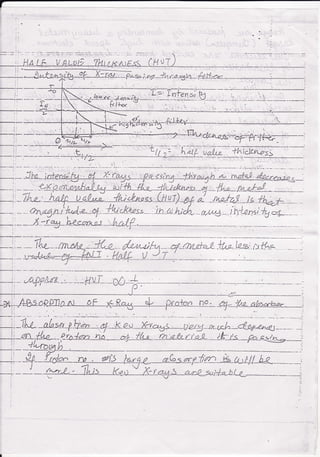 HALF VALUE THICKNESS (HVT)
Intensity of X-ray passing through filter
I₀
more density filter
I = Intensity
I₀/2
filter
Thickness of filter
O
t1/2
t1/2 = half value thickness
The intensity of X-rays passing through a metal decreases
exponentially with the thickness of the metal
The half value thickness (HVT) of a metal is that
magnitude of thickness in which any intensity of
X-ray becomes half.
The more the density of metal the less is the
value of Half V T
approx. HVT ∝ 1/ρ
ABSORPTION OF X-Ray & proton no. of the absorber
The absorption of Kev X-rays very much depends
on the proton no. of the material it is passing
through
If Proton no. is large absorption will be
more. This Kev X-rays are suitable